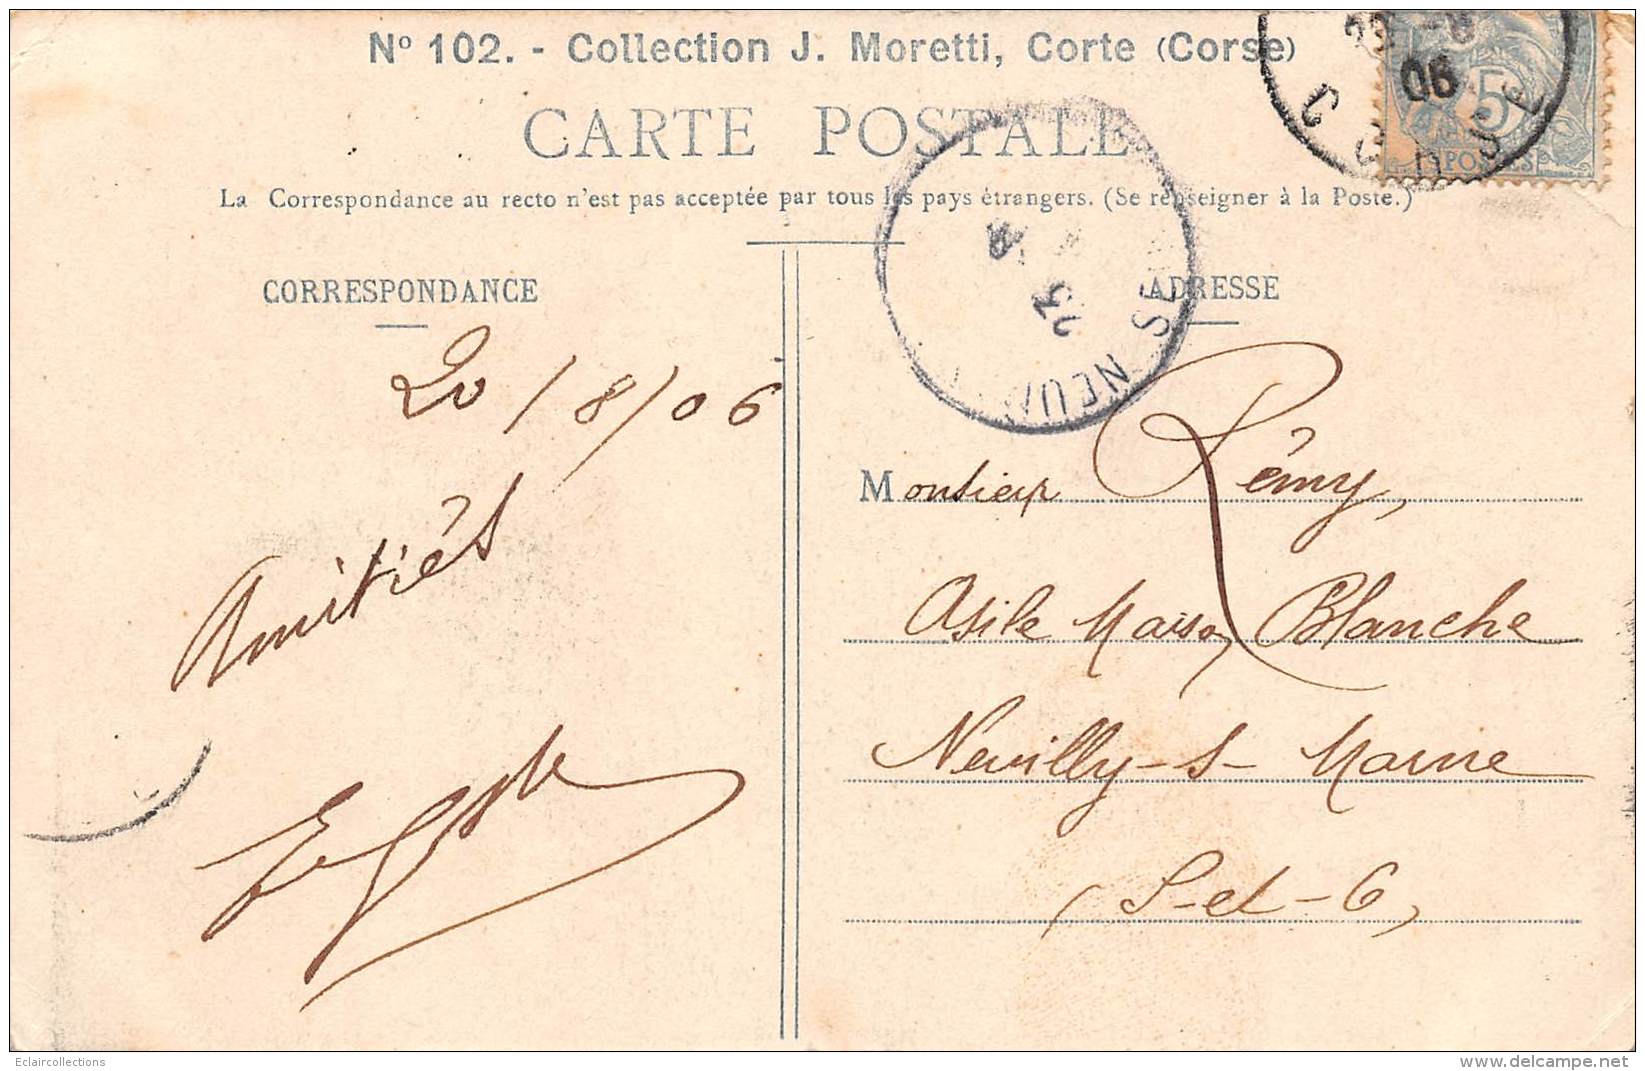 Nº 102. - Collection J. Moretti, Corte (Corse)
CARTE POSTALE
La Correspondance au recto n'est pas acceptée par tous les pays étrangers. (Se renseigner à la Poste.)
CORRESPONDANCE
20/8/06
Amitiés
ADRESSE
Monsieur Rémy,
Asile Maison Blanche
Neuilly-s-Marne
(S-et-O)
06
CORSE
5
POSTES
25
SEINE
Eclaircollections
www.delcampe.net